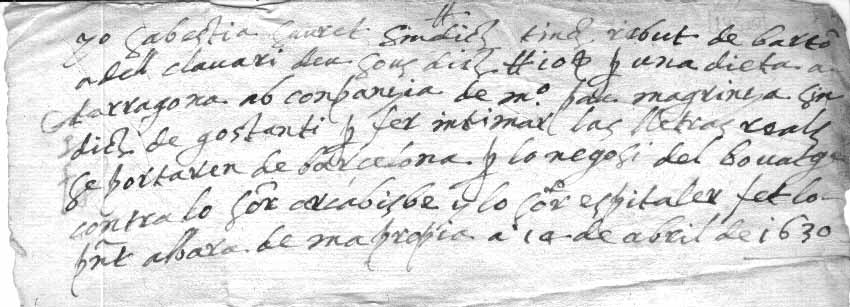 yo sabestia gauret sindich tinch rebut de barto
adell clavari deu sous dich ll 10 s p una dieta a
tarragona ab conpanyia de mº pau magrinya sin
dich de gostanti p fer intimar las lletras reals
se portaren de barcelona p lo negosi del bouatge
contra lo sor arcabisbe y lo sor espitaler fet lo
pnt albara de ma propia a 14 de abril de 1630